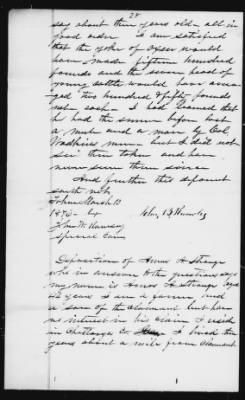 28
say about three years old, all in
good order. I am satisfied
that the yoke of oxen would
have made fifteen hundred
pounds and the seven head of
young cattle would have aver
aged two hundred & fifty pounds
net each I had learned that
he had the same before lost
a mule and a mare by Col.
men but I did not
see them taken and have
never seen them since
And further this deponent
saith not
John
187
Special Com
Deposition of
who in answer to the questions says
my name is aged
42 years I am a farmer and
a son of the claimant but have
no interest in his claim I resid
in Chattooga Co. I lived three
years about a mile from claimant